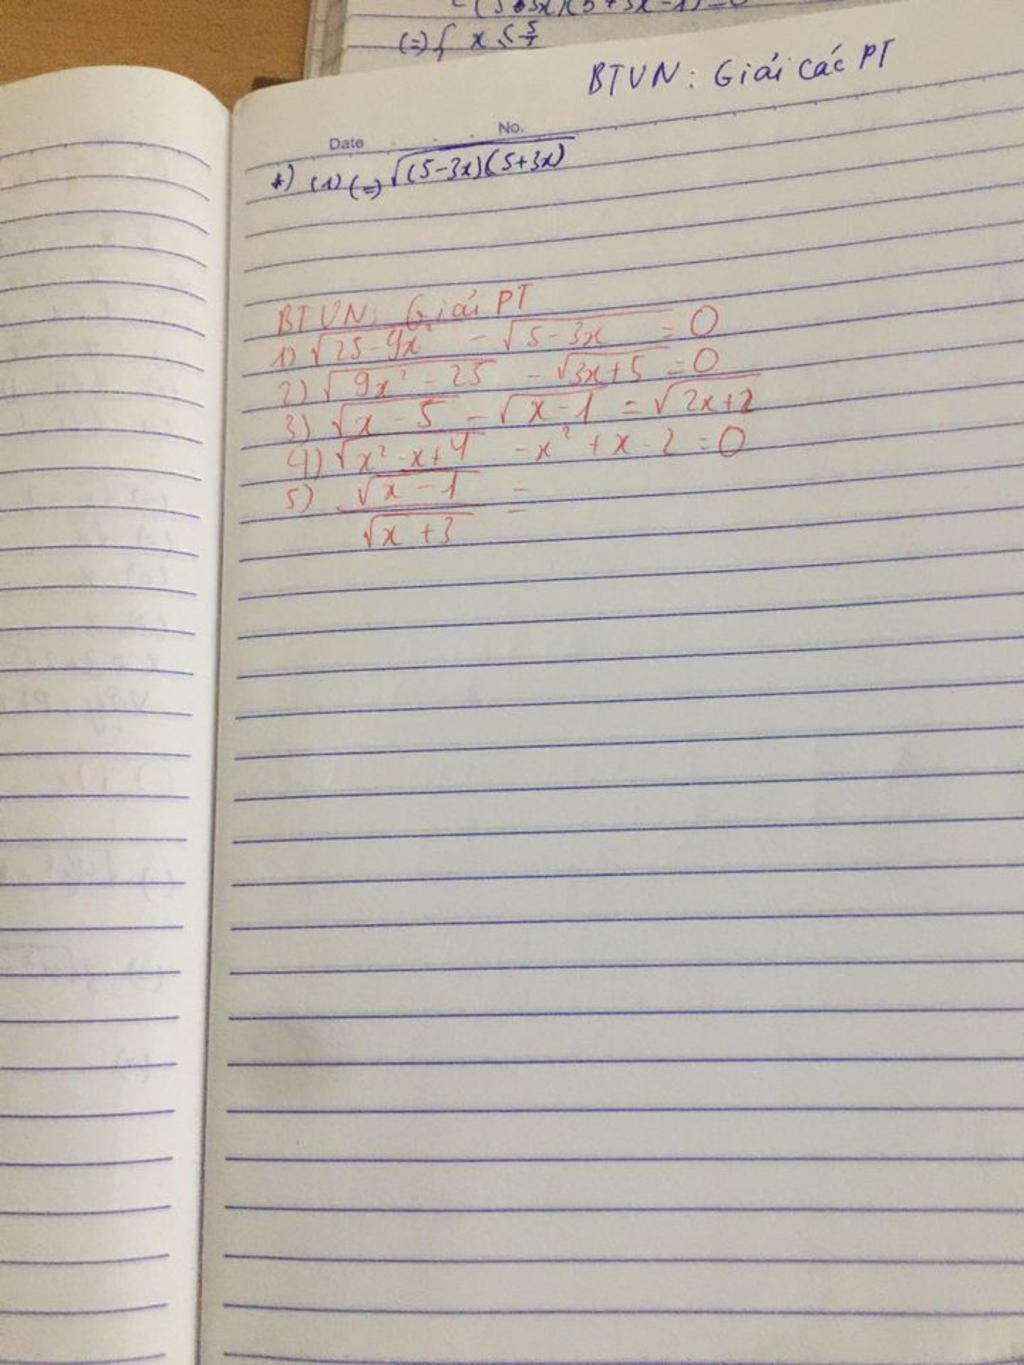 (=) { x ≤ 5/3
BTVN: Giải các PT
Date No.
*) (1) (=) √(5-3x)(5+3x)
BTVN: Giải PT
1) √25-9x² - √5-3x = 0
2) √9x²-25 - √3x+5 = 0
3) √x-5 - √x-1 = √2x+2
4) √x²-x+4 - x² + x - 2 = 0
5) √x-1 =
√x+3